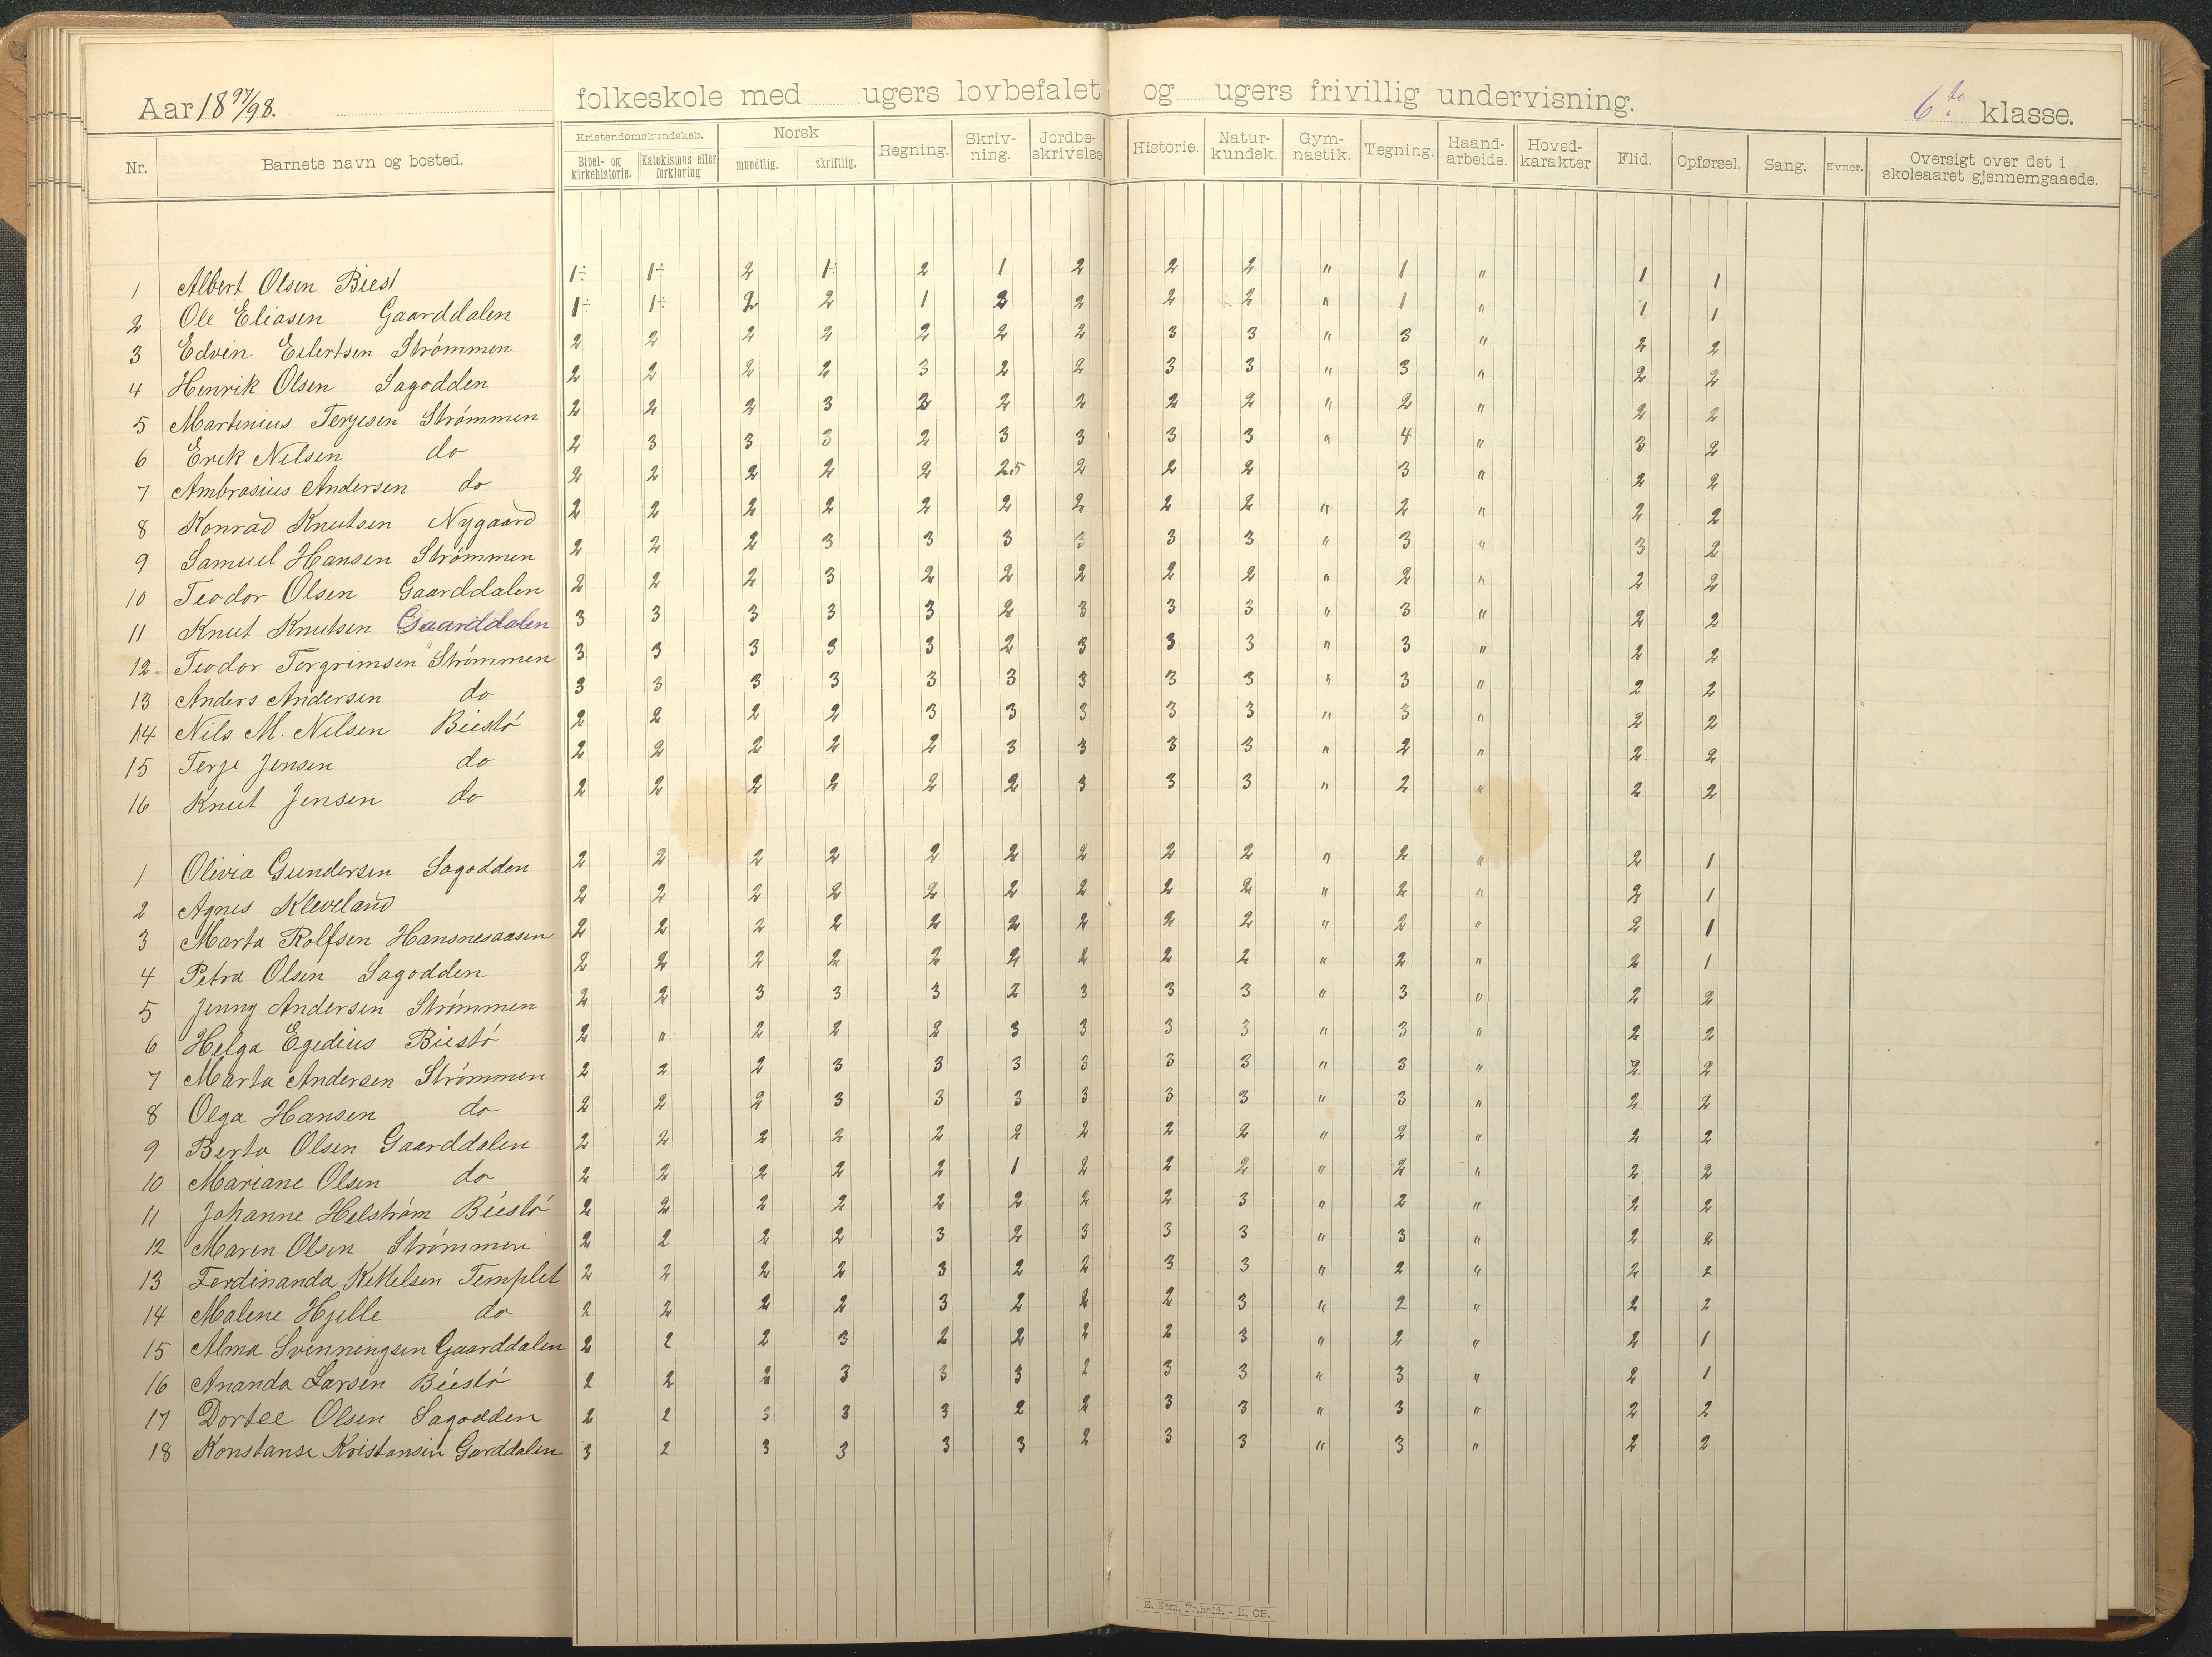 Aar 1897/98. folkeskole med ugers lovbefalet og ugers frivillig undervisning. 6te klasse.
Nr. Barnets navn og bosted. Kristendomskundskab. Bibel- og kirkehistorie. Katekismus eller forklaring Norsk mundtlig. skriftlig. Regning. Skriv-ning. Jordbe-skrivelse Historie. Natur-kundsk. Gym-nastik. Tegning. Haand-arbeide. Hoved-karakter Flid. Opførsel. Sang. Evner. Oversigt over det i skoleaaret gjennemgaaede.
1 Albert Olsen Biest 1÷ 1÷ 2 1÷ 2 1 2 2 2 " 1 " 1 1
2 Ole Eliasen Gaarddalen 1÷ 1÷ 2 2 1 3 2 2 2 " 1 " 1 1
3 Edvin Eilertsen Strømmen 2 2 2 2 2 2 2 3 3 " 3 " 2 2
4 Henrik Olsen Sagodden 2 2 2 2 3 2 2 3 3 " 3 " 2 2
5 Martinius Terjesen Strømmen 2 2 2 3 2 2 2 2 2 " 2 " 2 2
6 Erik Nilsen do 2 3 3 3 2 3 3 3 3 " 4 " 3 2
7 Ambrosius Andersen do 2 2 2 2 2 2.5 2 2 2 3 " 2 2
8 Konrad Knutsen Nygaard 2 2 2 2 2 2 2 2 2 " 2 " 2 2
9 Samuel Hansen Strømmen 2 2 2 3 3 3 3 3 3 " 3 " 3 2
10 Teodor Olsen Gaarddalen 2 2 2 3 2 2 2 2 2 " 2 " 2 2
11 Knut Knutsen Gaarddalen 3 3 3 3 3 2 3 3 3 " 3 " 2 2
12 Teodor Torgrimsen Strømmen 3 3 3 3 3 2 3 3 3 " 3 " 2 2
13 Anders Andersen do 3 3 3 3 3 3 3 3 3 " 3 " 2 2
14 Nils M. Nilsen Biestø 2 2 2 2 3 3 3 3 3 " 3 " 2 2
15 Terje Jensen do 2 2 2 2 2 3 3 3 3 " 2 " 2 2
16 Knut Jensen do 2 2 2 2 2 2 3 3 3 " 2 " 2 2
1 Olivia Gundersen Sagodden 2 2 2 2 2 2 2 2 2 " 2 " 2 1
2 Agnes Kleveland 2 2 2 2 2 2 2 2 2 " 2 " 2 1
3 Marta Rolfsen Hansnesaasen 2 2 2 2 2 2 2 2 2 " 2 " 2 1
4 Petra Olsen Sagodden 2 2 2 2 2 2 2 2 2 " 2 " 2 1
5 Jenny Andersen Strømmen 2 2 3 3 3 2 3 3 3 " 3 " 2 2
6 Helga Egedius Biestø 2 " 2 2 2 3 3 3 3 " 3 " 2 2
7 Marta Andersen Strømmen 2 2 2 3 3 3 3 3 3 " 3 " 2 2
8 Olga Hansen do 2 2 2 3 3 3 3 3 3 " 3 " 2 2
9 Berta Olsen Gaarddalen 2 2 2 2 2 2 2 2 2 " 2 " 2 2
10 Mariane Olsen do 2 2 2 2 2 1 2 2 2 " 2 " 2 2
11 Johanne Helstrøm Biestø 2 2 2 2 2 2 2 2 3 " 2 " 2 2
12 Maren Olsen Strømmen 2 2 2 2 3 2 3 3 3 " 3 " 2 2
13 Ferdinanda Kittelsen Templet 2 2 2 2 3 2 2 3 3 " 2 " 2 2
14 Malene Hjelle do 2 2 2 2 3 2 2 2 3 " 2 " 2 2
15 Alma Svenningsen Gaarddalen 2 2 2 3 2 2 2 2 3 " 2 " 2 1
16 Ananda Larsen Biestø 2 2 2 3 3 3 2 3 3 " 3 " 2 1
17 Dortee Olsen Sagodden 2 2 3 3 3 2 2 3 3 " 3 " 2 2
18 Konstanse Kristansin Garddalen 3 2 3 3 3 3 2 3 3 " 3 " 2 2
E. Sem. Fr.hald. - E. CB.